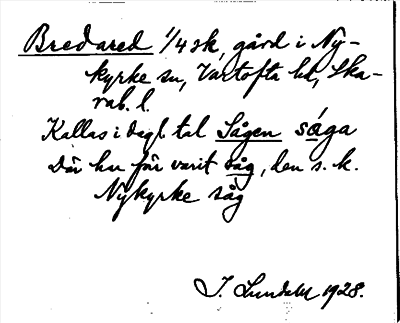 Bredared 1/4 sk, gård i Ny-
kyrke sn, Vartofta hd, Ska-
rab. l.
Kallas i dagl. tal Sågen såga
Där har förr varit såg, den s.k.
Nykyrke såg
J. Lundahl 1928.